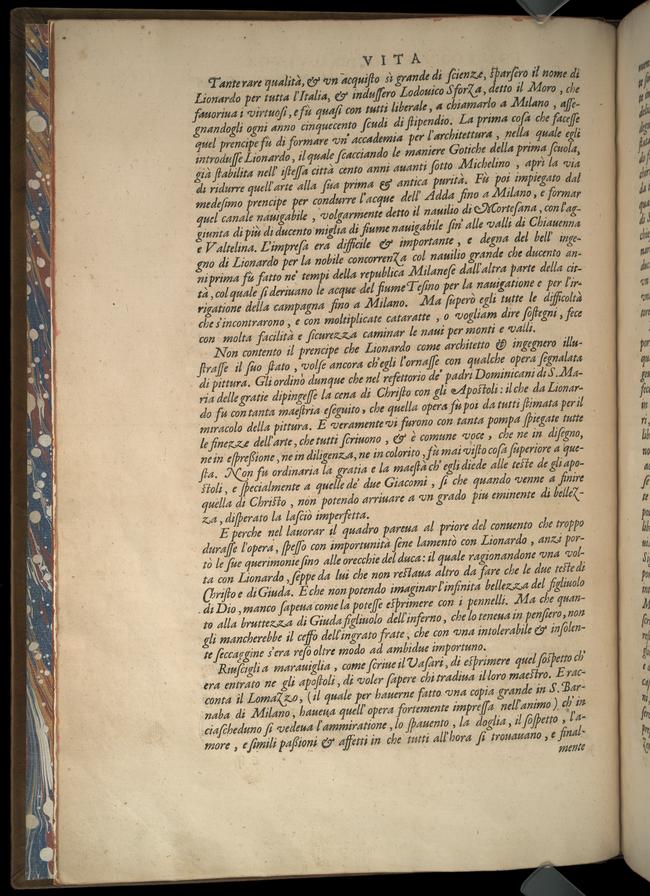 VITA
Tante rare qualità, & vn acquisto sì grande di scienze, sparsero il nome di
Lionardo per tutta l'Italia, & indussero Lodouico Sforza, detto il Moro, che
fauoriua i virtuosi, e fù quasi con tutti liberale, a chiamarlo a Milano, asse-
gnandogli ogni anno cinquecento scudi di stipendio. La prima cosa che facesse
quel prencipe fù di formare vn' accademia per l'architettura, nella quale egli
introdusse Lionardo, il quale scacciando le maniere Gotiche della prima scuola,
già stabilita nell' istessa città cento anni auanti sotto Michelino, aprì la via
di ridurre quell'arte alla sua prima & antica purità. Fù poi impiegato dal
medesimo prencipe per condurre l'acque dell' Adda fino a Milano, e formar
quel canale nauigabile, volgarmente detto il nauilio di Mortesana, con l'ag-
giunta di più di ducento miglia di fiume nauigabile sin' alle valli di Chiauenna
e Valtelina. L'impresa era difficile & importante, e degna del bell' inge-
gno di Lionardo per la nobile concorrenza col nauilio grande che ducento an-
ni prima fù fatto ne' tempi della republica Milanese dall'altra parte della cit-
tà, col quale si deriuano le acque del fiume Tesino per la nauigatione e per l'ir-
rigatione della campagna fino a Milano. Ma superò egli tutte le difficoltà
che s'incontrarono, e con moltiplicate cataratte, o vogliam dire sostegni, fece
con molta facilità e sicurezza caminar le naui per monti e valli.
Non contento il prencipe che Lionardo come architetto & ingegnero illu-
strasse il suo stato, volse ancora ch'egli l'ornasse con qualche opera segnalata
di pittura. Gli ordinò dunque che nel refettorio de' padri Dominicani di S. Ma-
ria delle gratie dipingesse la cena di Christo con gli Apostoli: il che da Lionar-
do fu con tanta maestria eseguito, che quella opera fu poi da tutti stimata per il
miracolo della pittura. E veramente vi furono con tanta pompa spiegate tutte
le finezze dell'arte, che tutti scriuono, & è comune voce, che ne in disegno,
ne in espreßione, ne in diligenza, ne in colorito, fù mai visto cosa superiore a que-
sta. Non fu ordinaria la gratia e la maestà ch' egli diede alle teste de gli apo-
stoli, e specialmente a quelle de' due Giacomi, sì che quando venne a finire
quella di Christo, non potendo arriuare a vn grado piu eminente di bellez-
za, disperato la lasciò imperfetta.
E perche nel lauorar il quadro pareua al priore del conuento che troppo
durasse l'opera, spesso con importunità sene lamentò con Lionardo, anzi por-
tò le sue querimonie sino alle orecchie del duca: il quale ragionandone vna vol-
ta con Lionardo, seppe da lui che non restaua altro da fare che le due teste di
Christo e di Giuda. E che non potendo imaginar l'infinita bellezza del figliuolo
di Dio, manco sapeua come la potesse esprimere con i pennelli. Ma che quan-
to alla bruttezza di Giuda figliuolo dell'inferno, che lo teneua in pensiero, non
gli mancherebbe il ceffo dell'ingrato frate, che con vna intolerabile & insolen-
te seccaggine s'era reso oltre modo ad ambidue importuno.
Riuscigli a marauiglia, come scriue il Vasari, di esprimere quel sospetto ch'
era entrato ne gli apostoli, di voler sapere chi tradiua il loro maestro. E rac-
conta il Lomazzo, (il quale per hauerne fatto vna copia grande in S. Bar-
naba di Milano, haueua quell'opera fortemente impressa nell'animo) ch' in
ciascheduno si vedeua l'ammiratione, lo spauento, la doglia, il sospetto, l'a-
more, e simili paßioni & affetti in che tutti all'hora si trouauano, e final-
mente